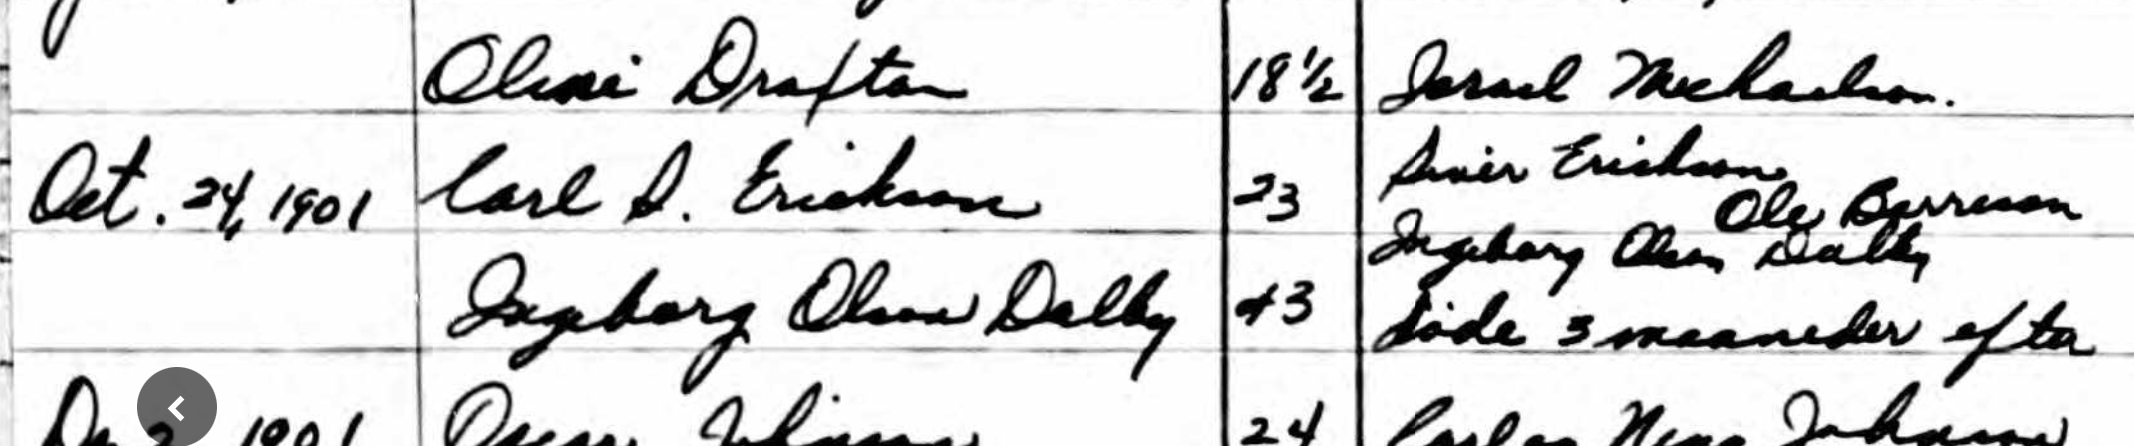 Olini Drafton 18½ Israel Michaelson.
Oct. 24, 1901 Carl S. Erickson 23 Siver Erickson
Ole Barreson
Ingeborg Olson Dalby
Ingeborg Olson Dalby 43 döde 3 maaneder efter
1901 Oscar Johnson 24 Johnson